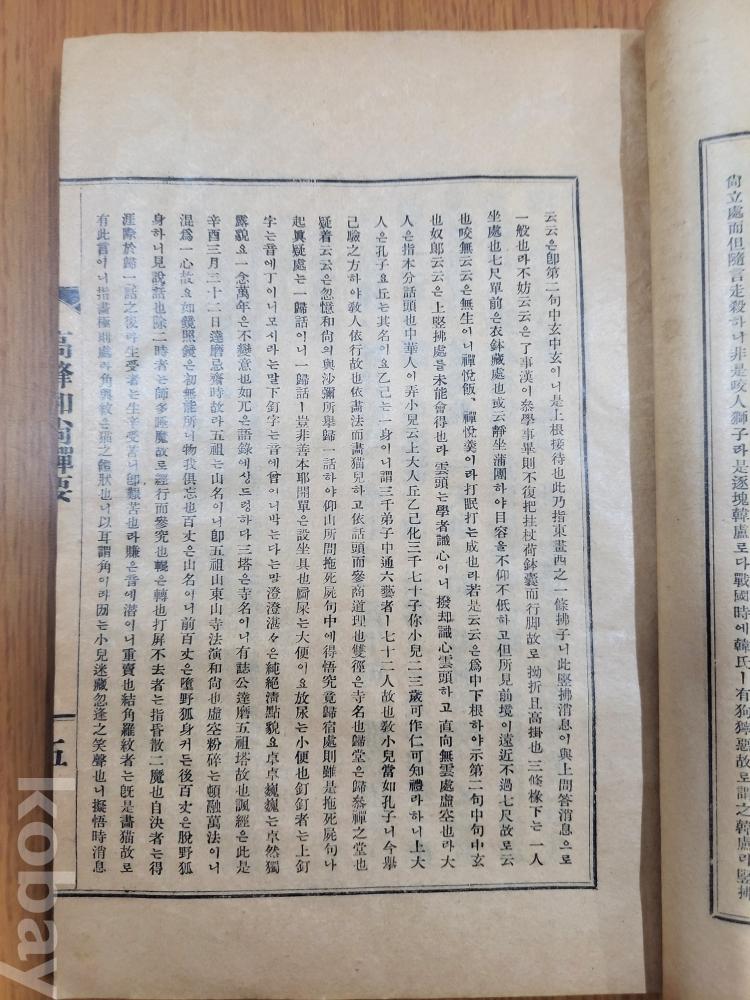 尙立處而但隨言走殺하니非是咬人獅子라是逐塊韓盧로다戰國時에韓氏ㅣ有狗獹惡故로謂之韓盧라竪拂
云云은卽第二句中玄中玄이니是上根接待也此乃指東畫西之一條拂子니此竪拂消息이與上問答消息으로
一般也라不妨云云은了事漢이叅學事畢則不復把拄杖荷鉢囊而行脚故로拗折且高掛也三條椽下는一人
坐處也七尺單前은衣鉢藏處也或云靜坐蒲團하야目容을不仰不低하고但所見前境이遠近不過七尺故로云
也咬無云云은無生이니禪悅飯、禪悅羹이라打眠打는成也라若是云云은爲中下根하야示第二句中句中玄
也奴郞云云은上竪拂處를未能會得也라雲頭는學者識心이니撥却識心雲頭하고直向無雲處虛空也라大
人은指本分話頭也中華人이弄小兒云上大人丘乙己化三千七十子你小兒二三歲可作仁可知禮라하니上大
人은孔子요丘는其名이요乙己는一身이니謂三千弟子中通六藝者ㅣ七十二人故也敎小兒當如孔子니今擧
己驗之方하야敎人依行故也依畵法而畵猫兒하고依話頭而叅商道理也雙徑은寺名也歸堂은歸叅禪之堂也
疑着云云은忽憶和尙의與沙彌所擧歸一話하야仰山所問拖死屍句中에得悟究竟歸宿處則雖是拖死屍句나
起眞疑處는一歸話이니一歸話ㅣ豈非善本耶開單은設坐具也屙屎는大便이요放尿는小便也釘釘者는上釘
字는音에丁이니모시라는말下釘字는音에에이니박는다는말澄澄湛々은純絶淸點貌요卓卓巍巍는卓然獨
露貌요一念萬年은不變意也如兀은語錄에상드령하다三塔은寺名이니有誌公達磨五祖塔故也諷經은此是
辛酉三月二十二日達磨忌齋時故라五祖는山名이니卽五祖山東山寺法演和尙也虛空粉碎는頓融萬法이니
混爲一心故요如鏡照鏡은初無能所니物我俱忘也百丈은山名이니前百丈은墮野狐身커든後百丈은脫野狐
身하니見說話也除二時者는師多睡魔故로經行而參究也輥은轉也打屛不去者는指昏散二魔也自決者는得
涯際於歸一話之後라生受者는生辛受苦니卽艱苦也라賺은音에潛이니重賣也結角羅紋者는旣是畵猫故로
有此言이니指畵極則處라角與紋은猫之態狀也니以耳謂角이라囡는小兒迷藏忽逢之笑聲也니擬悟時消息
高峰和尙禪要
五
kobay